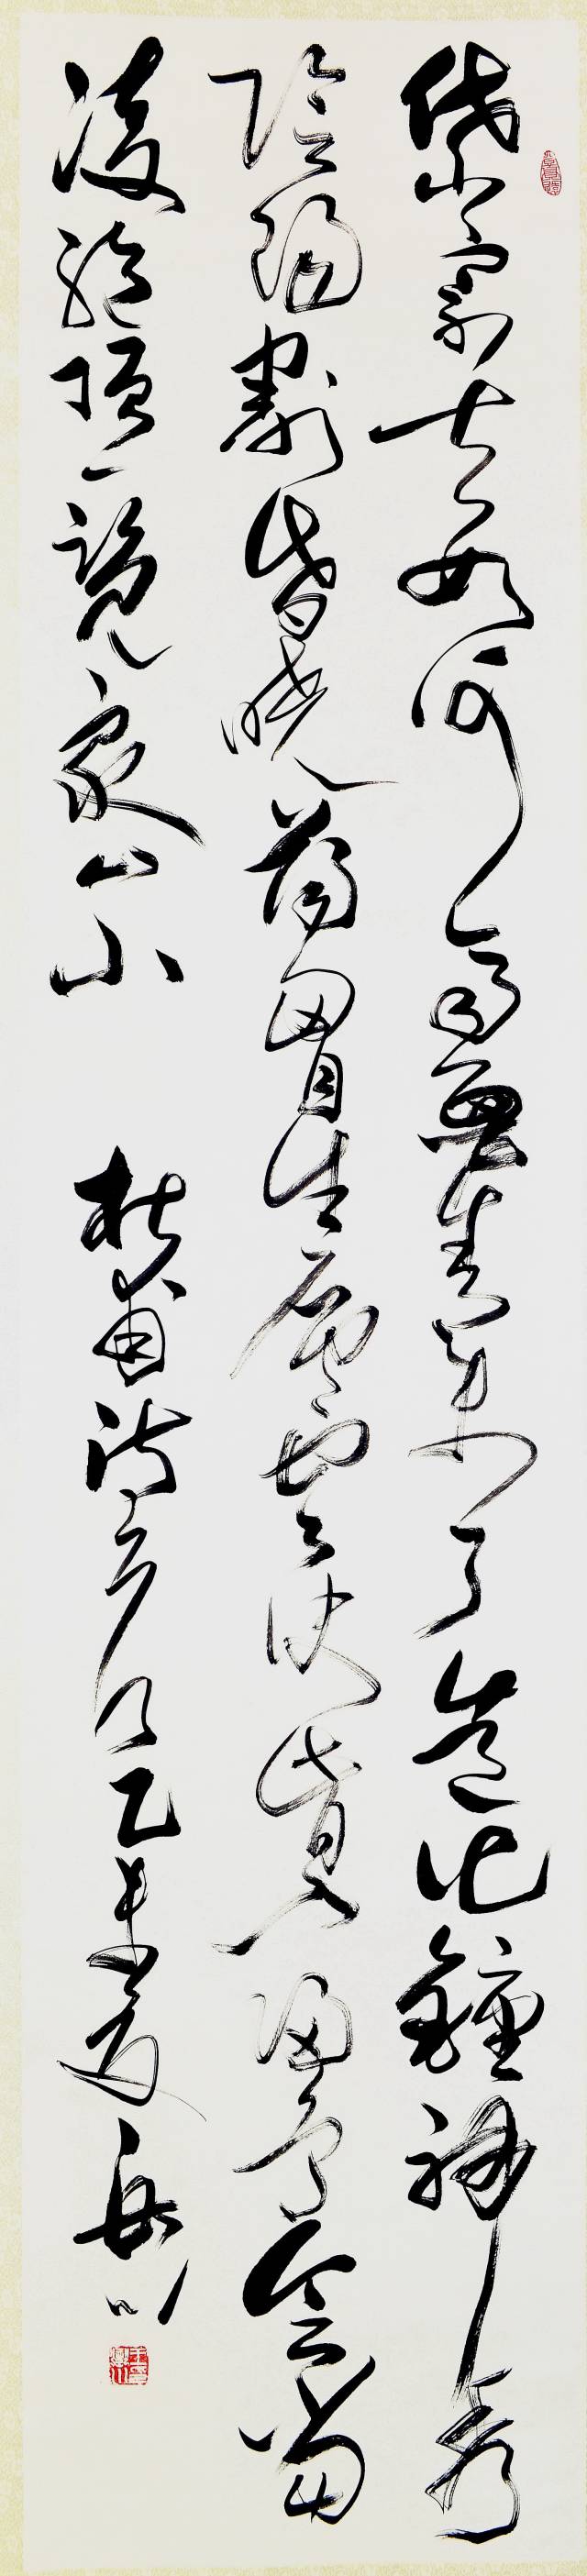 岱宗夫如何齊魯青未了造化鐘神秀
陰陽割昏曉蕩胷生層雲決眥入歸鳥會當
凌絕頂一覽衆山小 杜甫詩 乙未夏